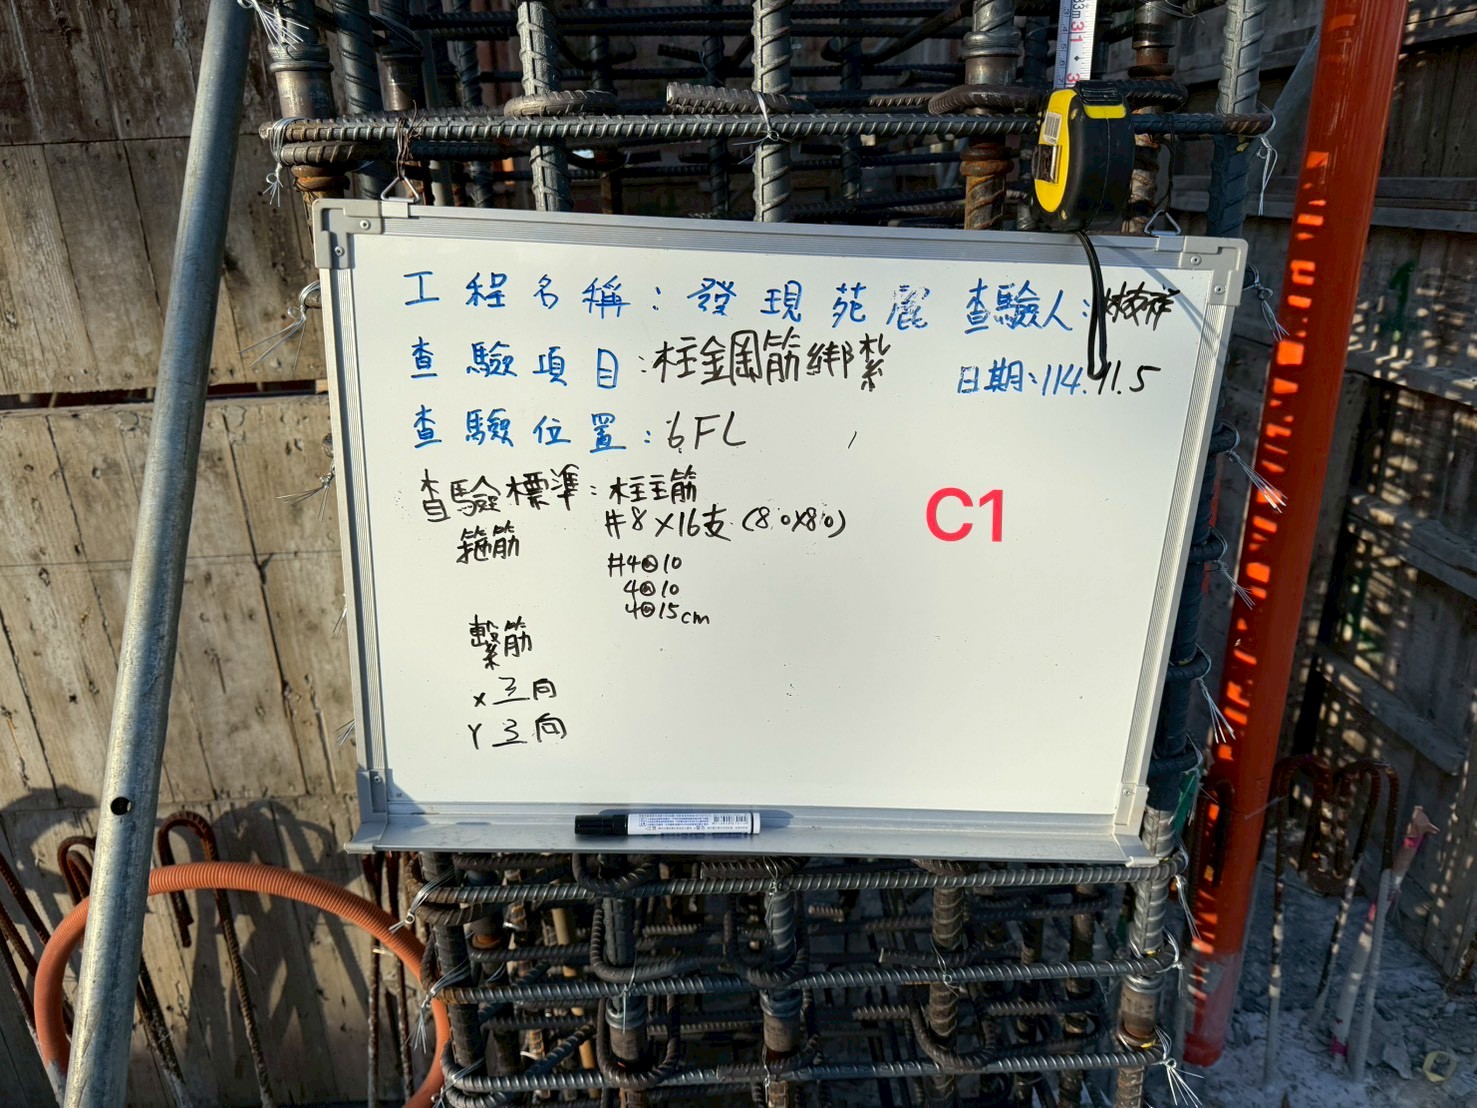 工程名稱：發現苑麗 查驗人：
查驗項目：柱鋼筋綁紮 日期：114.11.5
查驗位置：6FL
查驗標準：柱主筋
#8×16支(80×80)
C1
箍筋
#4@10
4@10
4@15cm
繫筋
X 3向
Y 3向
33m
31